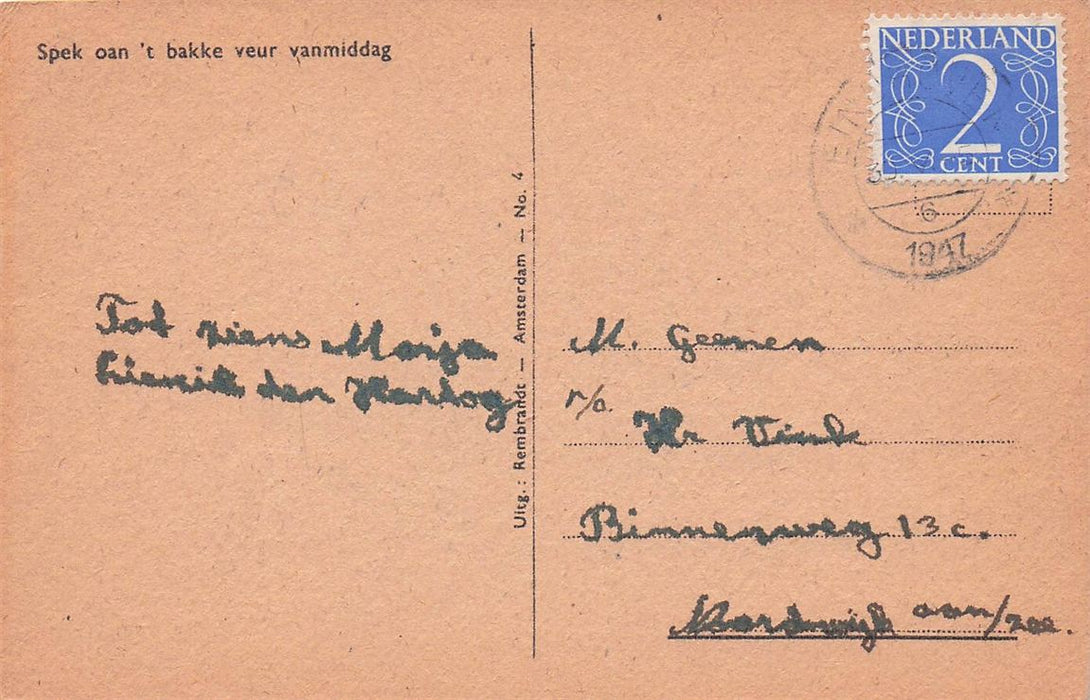 Spek oan 't bakke veur vanmiddag
Tot ziens Marja
den Hartog
Uitg.: Rembrandt — Amsterdam — No. 4
NEDERLAND
2
CENT
6
1947
M. Geenen
p/a.
Hr Vink
Binnenweg 13c.
Noordwijk aan/zee.